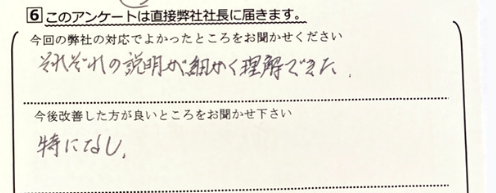 6 このアンケートは直接弊社社長に届きます。
今回の弊社の対応でよかったところをお聞かせください
それぞれの説明が細かく理解できた.
今後改善した方が良いところをお聞かせ下さい
特になし.